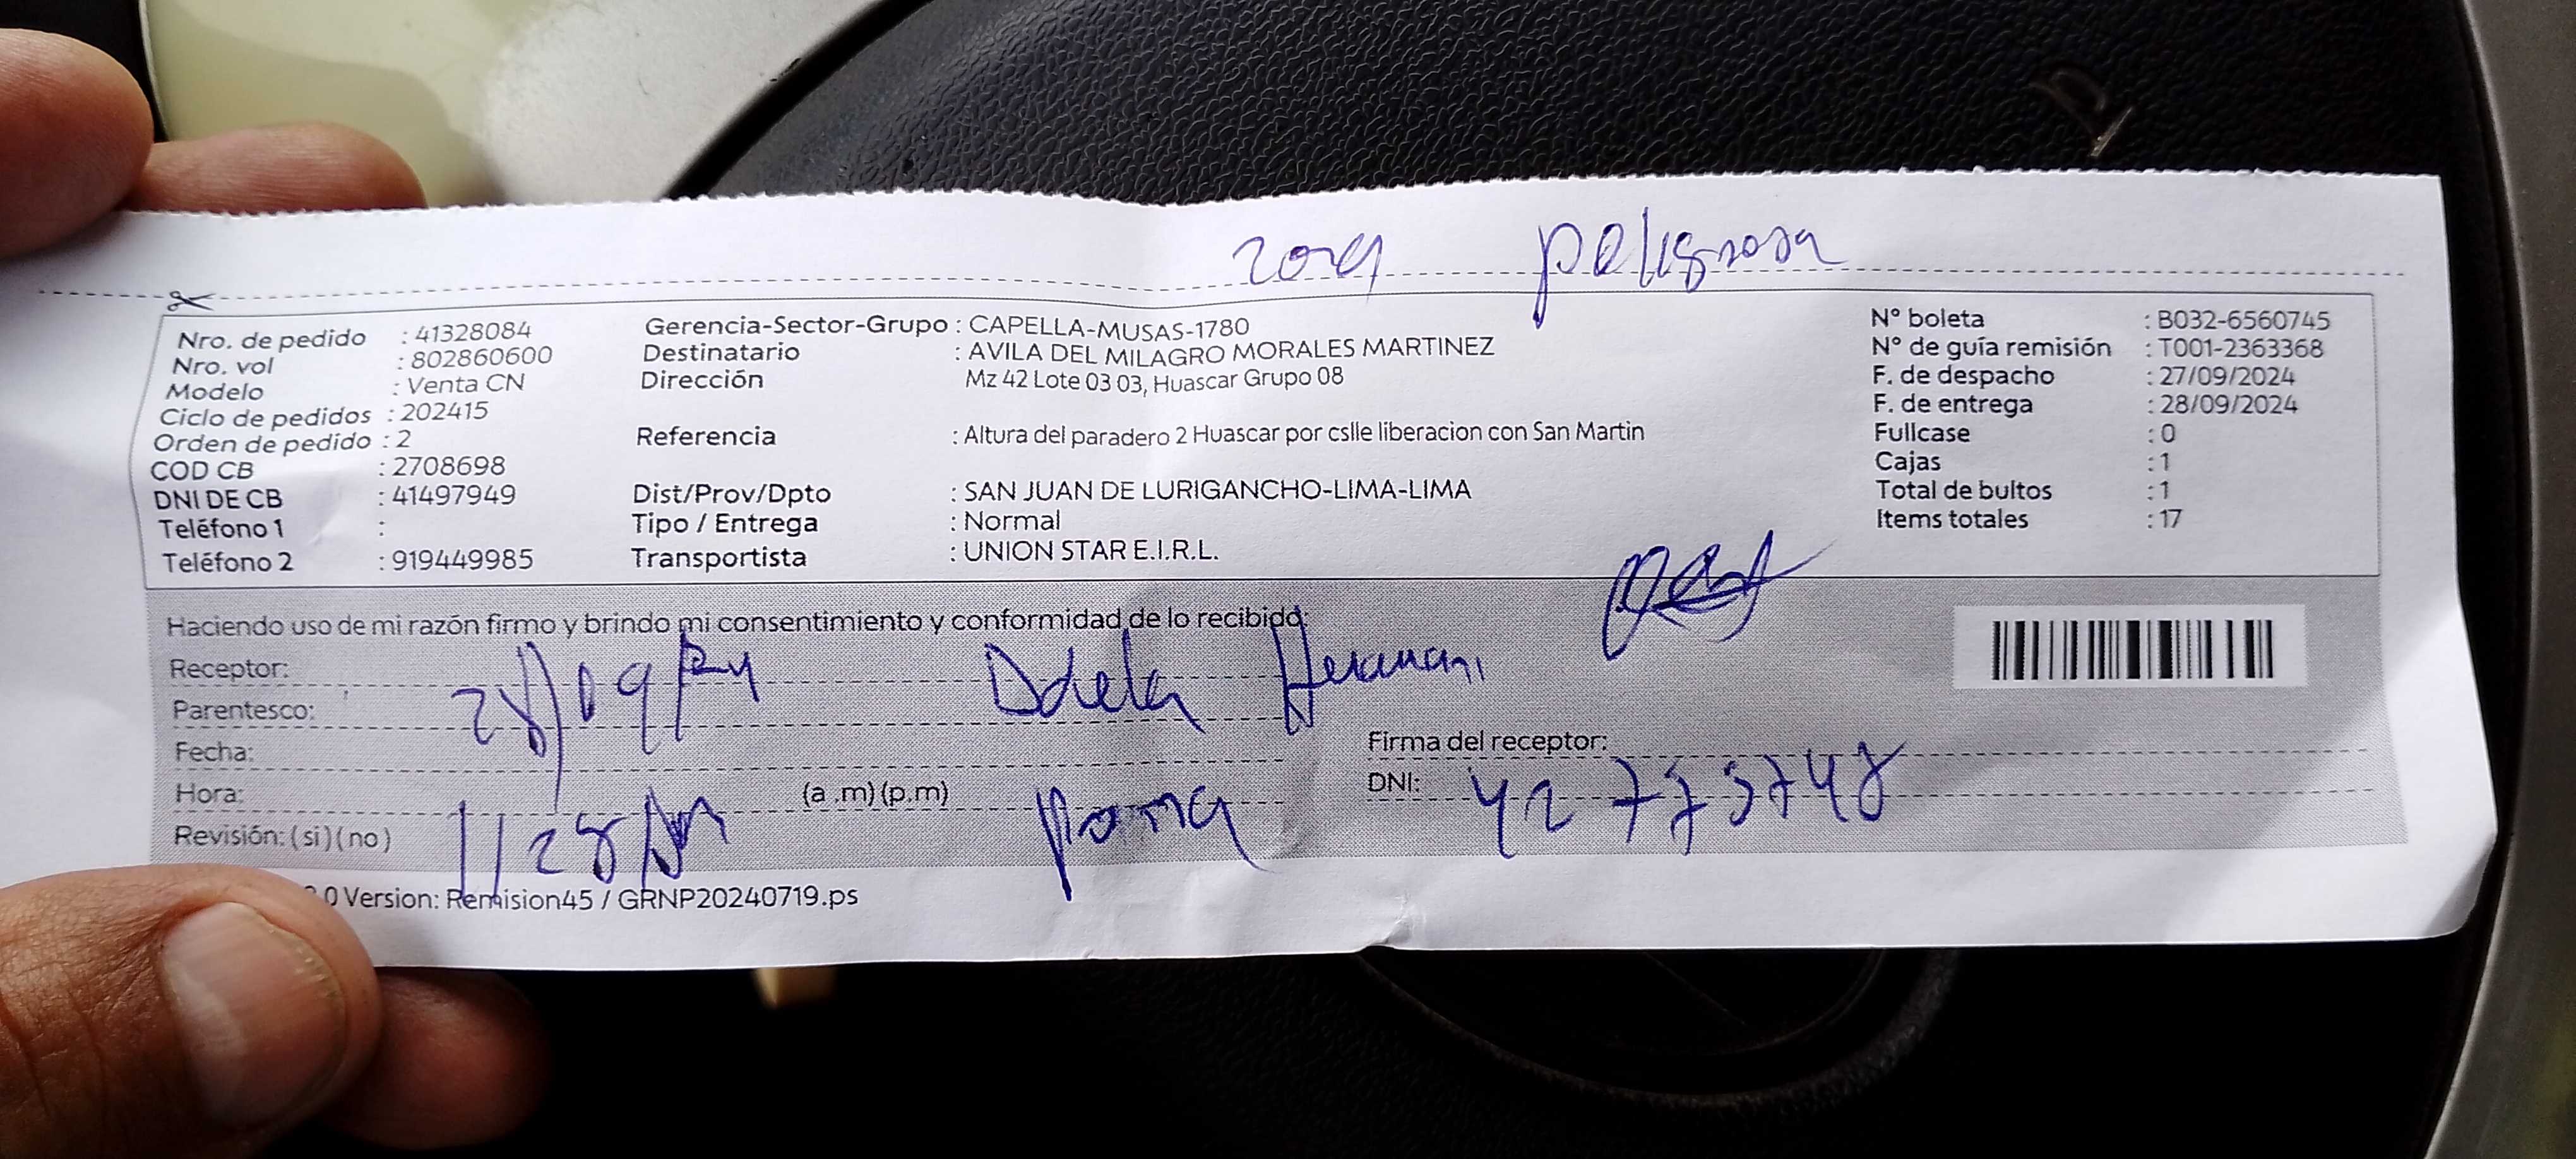 zona peligrosa
Nro. de pedido : 41328084
Nro. vol : 802860600
Modelo : Venta CN
Ciclo de pedidos : 202415
Orden de pedido : 2
COD CB : 2708698
DNI DE CB : 41497949
Teléfono 1 :
Teléfono 2 : 919449985
Gerencia-Sector-Grupo : CAPELLA-MUSAS-1780
Destinatario : AVILA DEL MILAGRO MORALES MARTINEZ
Dirección Mz 42 Lote 03 03, Huascar Grupo 08
Referencia : Altura del paradero 2 Huascar por cslle liberacion con San Martin
Dist/Prov/Dpto : SAN JUAN DE LURIGANCHO-LIMA-LIMA
Tipo / Entrega : Normal
Transportista : UNION STAR E.I.R.L.
N° boleta : B032-6560745
N° de guía remisión : T001-2363368
F. de despacho : 27/09/2024
F. de entrega : 28/09/2024
Fullcase : 0
Cajas : 1
Total de bultos : 1
Items totales : 17
Haciendo uso de mi razón firmo y brindo mi consentimiento y conformidad de lo recibido:
Receptor:
Parentesco: 28/09/24
Fecha:
Hora: (a .m) (p.m)
Revisión: ( si ) ( no ) 1128
Poma
Firma del receptor:
DNI: 42773748
0 Version: Remision45 / GRNP20240719.ps